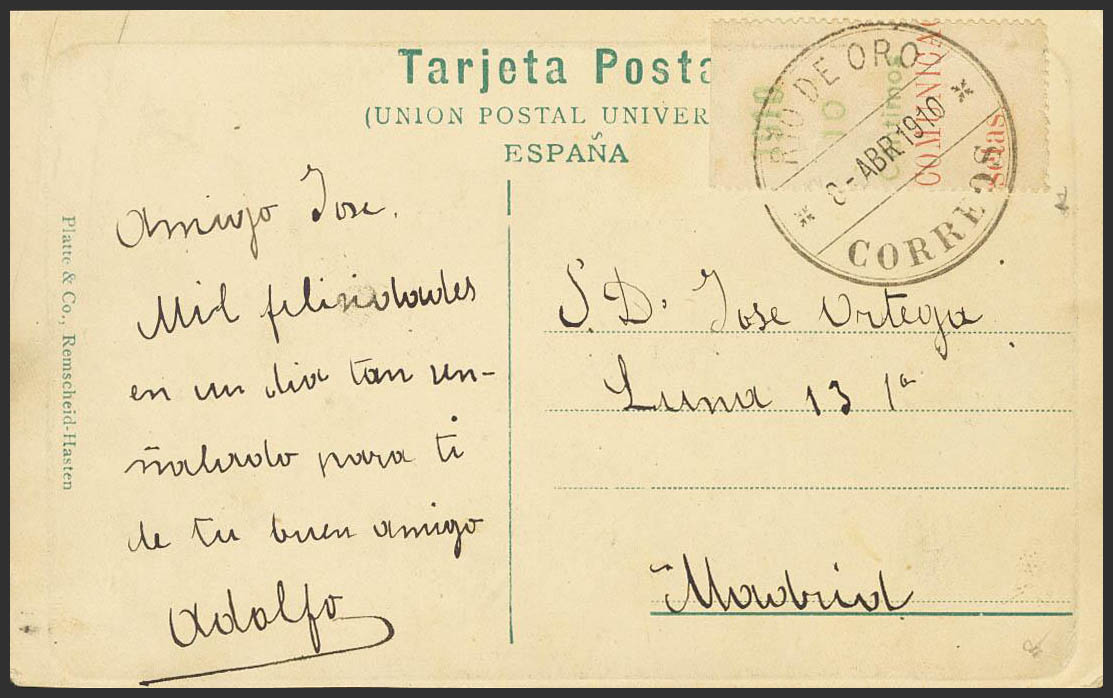 Tarjeta Posta
(UNION POSTAL UNIVER
ESPAÑA
1910
10
Céntimos
COMUNICAC
setas
RIO DE ORO
ABR 1910
CORREOS
Platte & Co., Remscheid-Hasten
Amigo Jose.
Mil felicidades
en un dia tan se-
ñalado para ti
de tu buen amigo
Adolfo
S. D. Jose Ortega
Luna 13 1º
Madrid